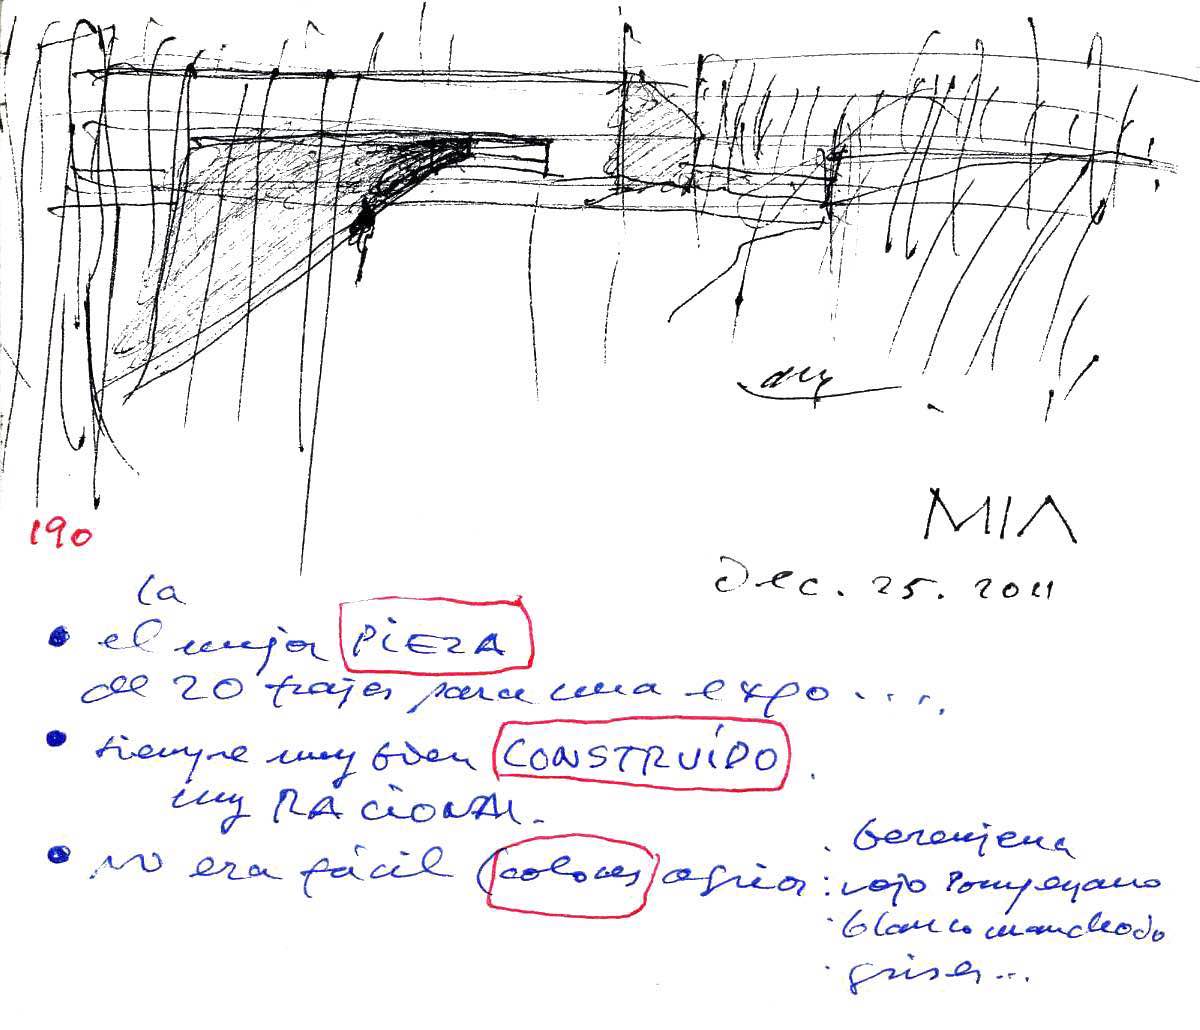 MIA
Dec. 25. 2011
190
la
• el mejor PIEZA
de 20 trajes para una expo ....
• siempre muy bien CONSTRUÍDO.
muy RACIONAL.
• no era fácil (colores) agrios:
. berenjena
. rojo Pompeyano
. blanco manchado
. grises...